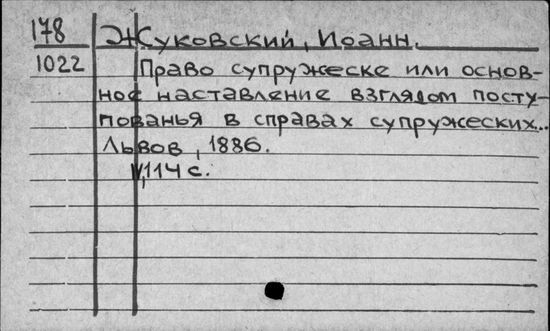 178 Жуковский, Иоанн.
1022 Право супружеске или основ-
ное наставление взглядом посту-
пованья в справах супружеских...
Львов, 1886.
V, 114 с.